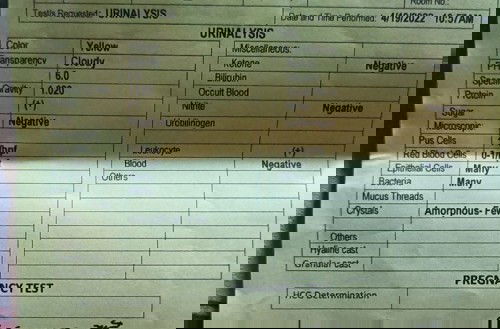 Room No.:
Tests Requested: URINALYSIS Date and Time Performed: 4/19/2022 10:57AM
URINALYSIS
Color Yellow Miscellaneous:
Transparency Cloudy Ketone Negative
6.0 Bilirubin
Gravity 1.020 Occult Blood
Protein (+) Nitrite Negative
Sugar Negative Urobilinogen
Microscopic
Pus Cells Leukocyte (+)
Red Blood Cells Blood Negative
Epithelial Cells Many Others
Bacteria Many
Mucus Threads
Crystals Amorphous- Few
Others
Hyaline cast
Granular cast
PREGNANCY TEST
HCG Determination